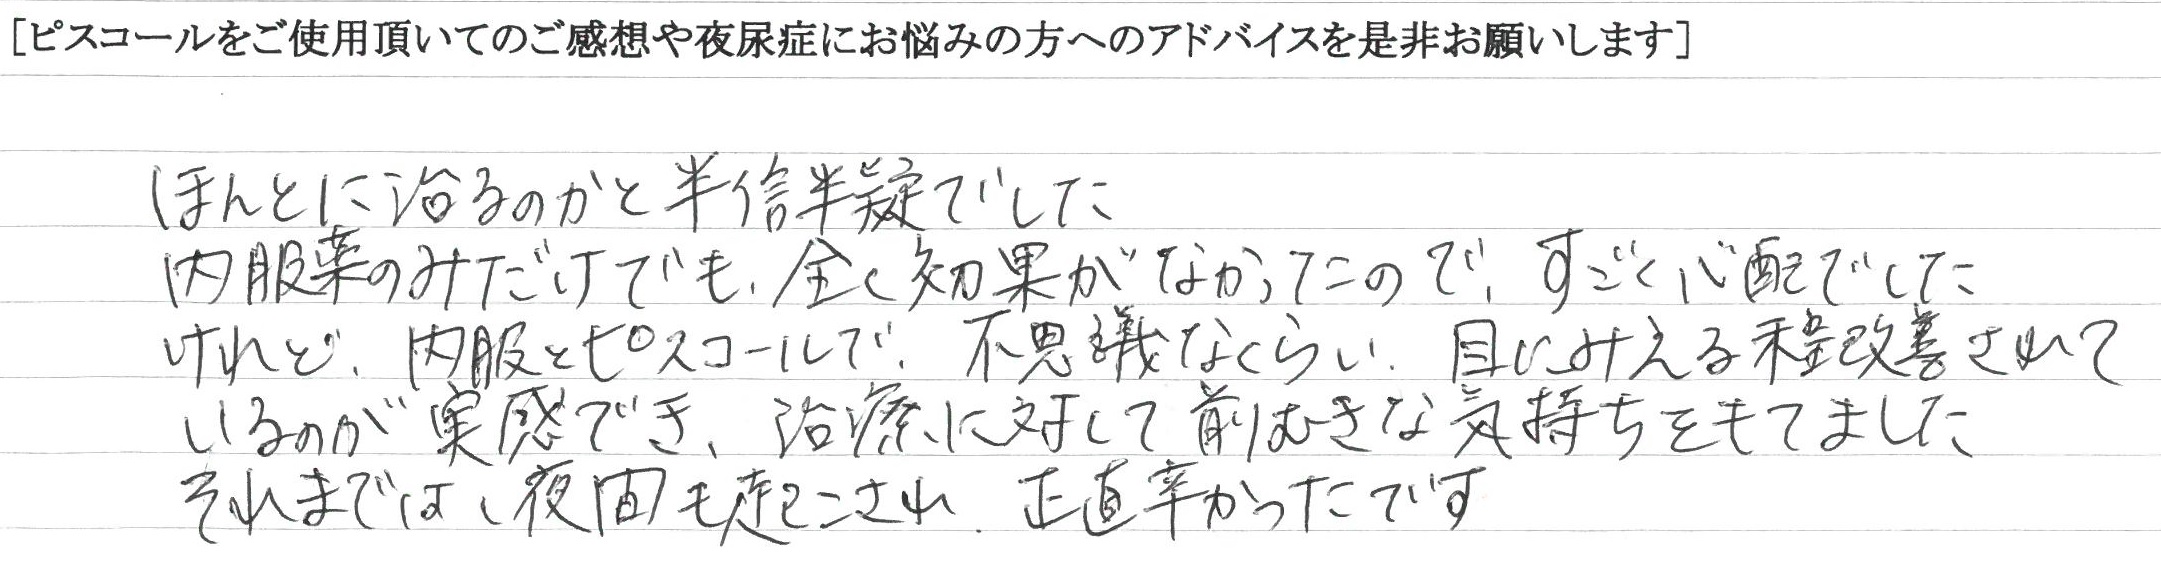 [ピスコールをご使用頂いてのご感想や夜尿症にお悩みの方へのアドバイスを是非お願いします]
ほんとに治るのかと半信半疑でした
内服薬のみだけでも、全く効果がなかったので、すごく心配でした
けれど、内服とピスコールで、不思議なくらい、目にみえる程改善されて
いるのが実感でき、治療に対して前むきな気持ちをもてました
それまでは、夜間も起こされ、正直辛かったです